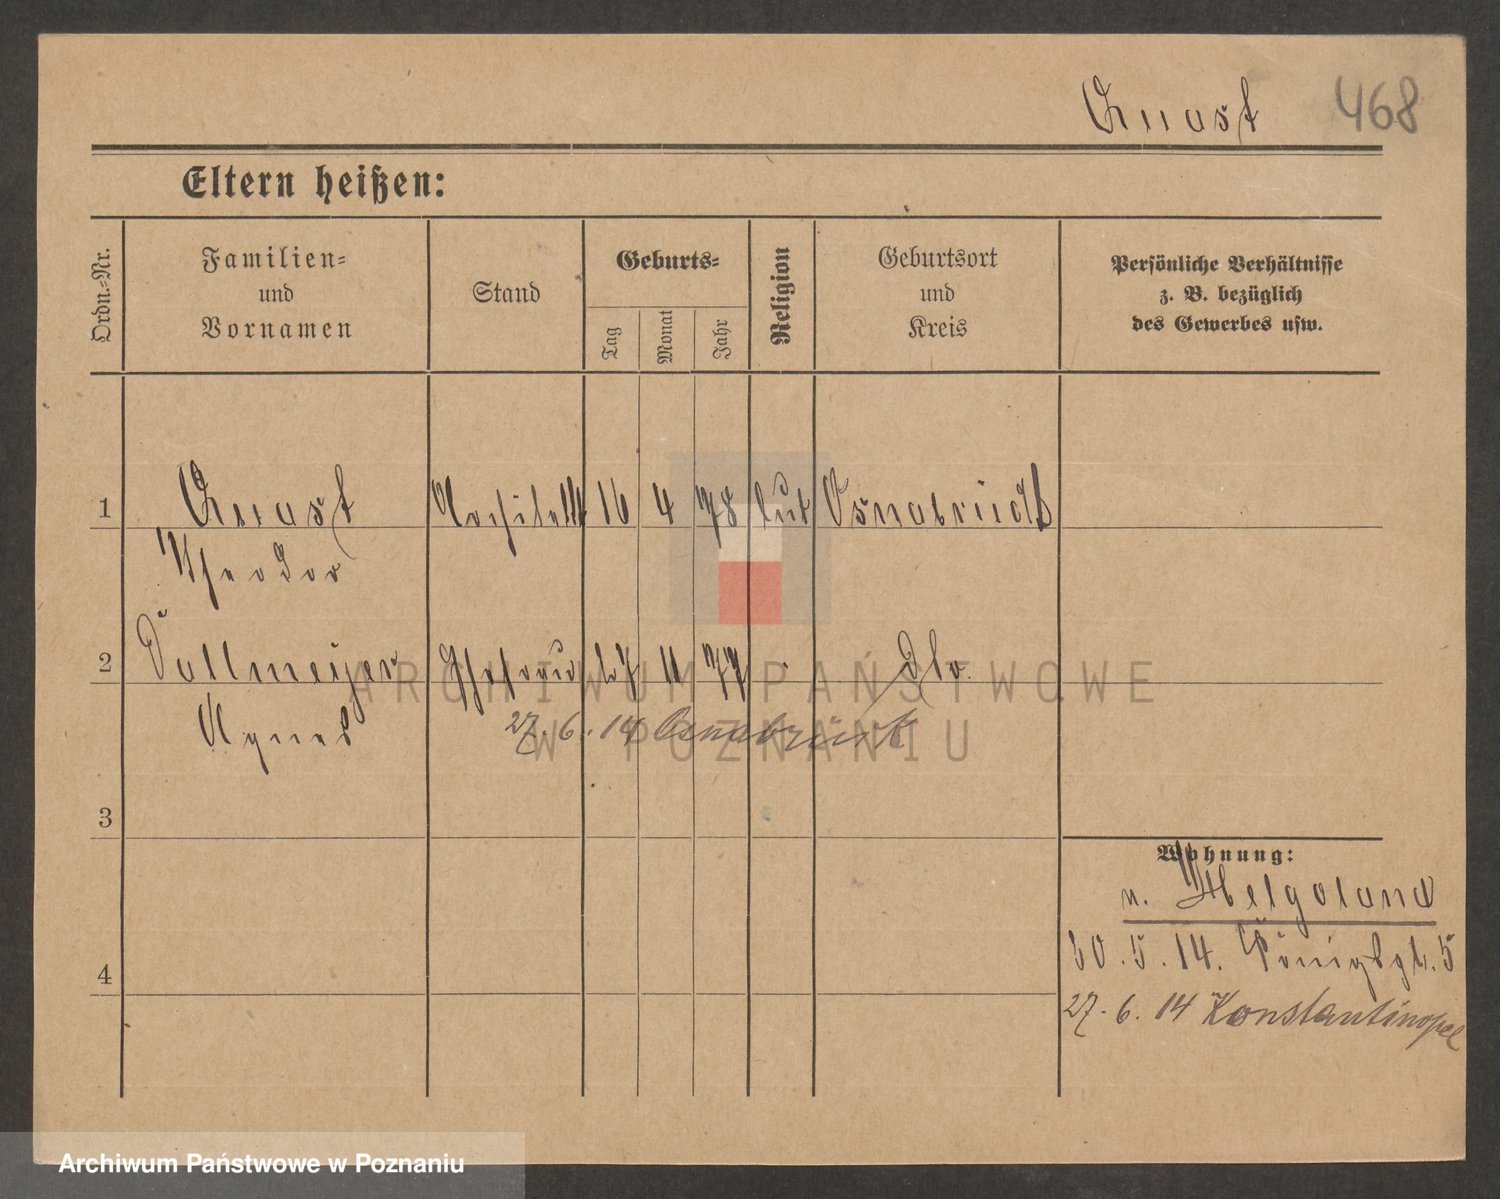 Quast 468
Eltern heißen:
Ordn.-Nr.
Familien-
und
Vornamen
Stand
Geburts-
Tag
Monat
Jahr
Religion
Geburtsort
und
Kreis
Persönliche Verhältnisse
z. B. bezüglich
des Gewerbes usw.
1 Quast Architekt 16 4 78 lut Osnabrück
Theodor
2 Dallmeijer Ehefrau 27 11 77 " dto.
Agnes
27. 6. 14 Osnabrück
3
4
Wohnung:
n. Helgoland
30. 5. 14. Königspl. 5
27. 6. 14 Konstantinopel
ARCHIWUM PAŃSTWOWE
W POZNANIU
Archiwum Państwowe w Poznaniu